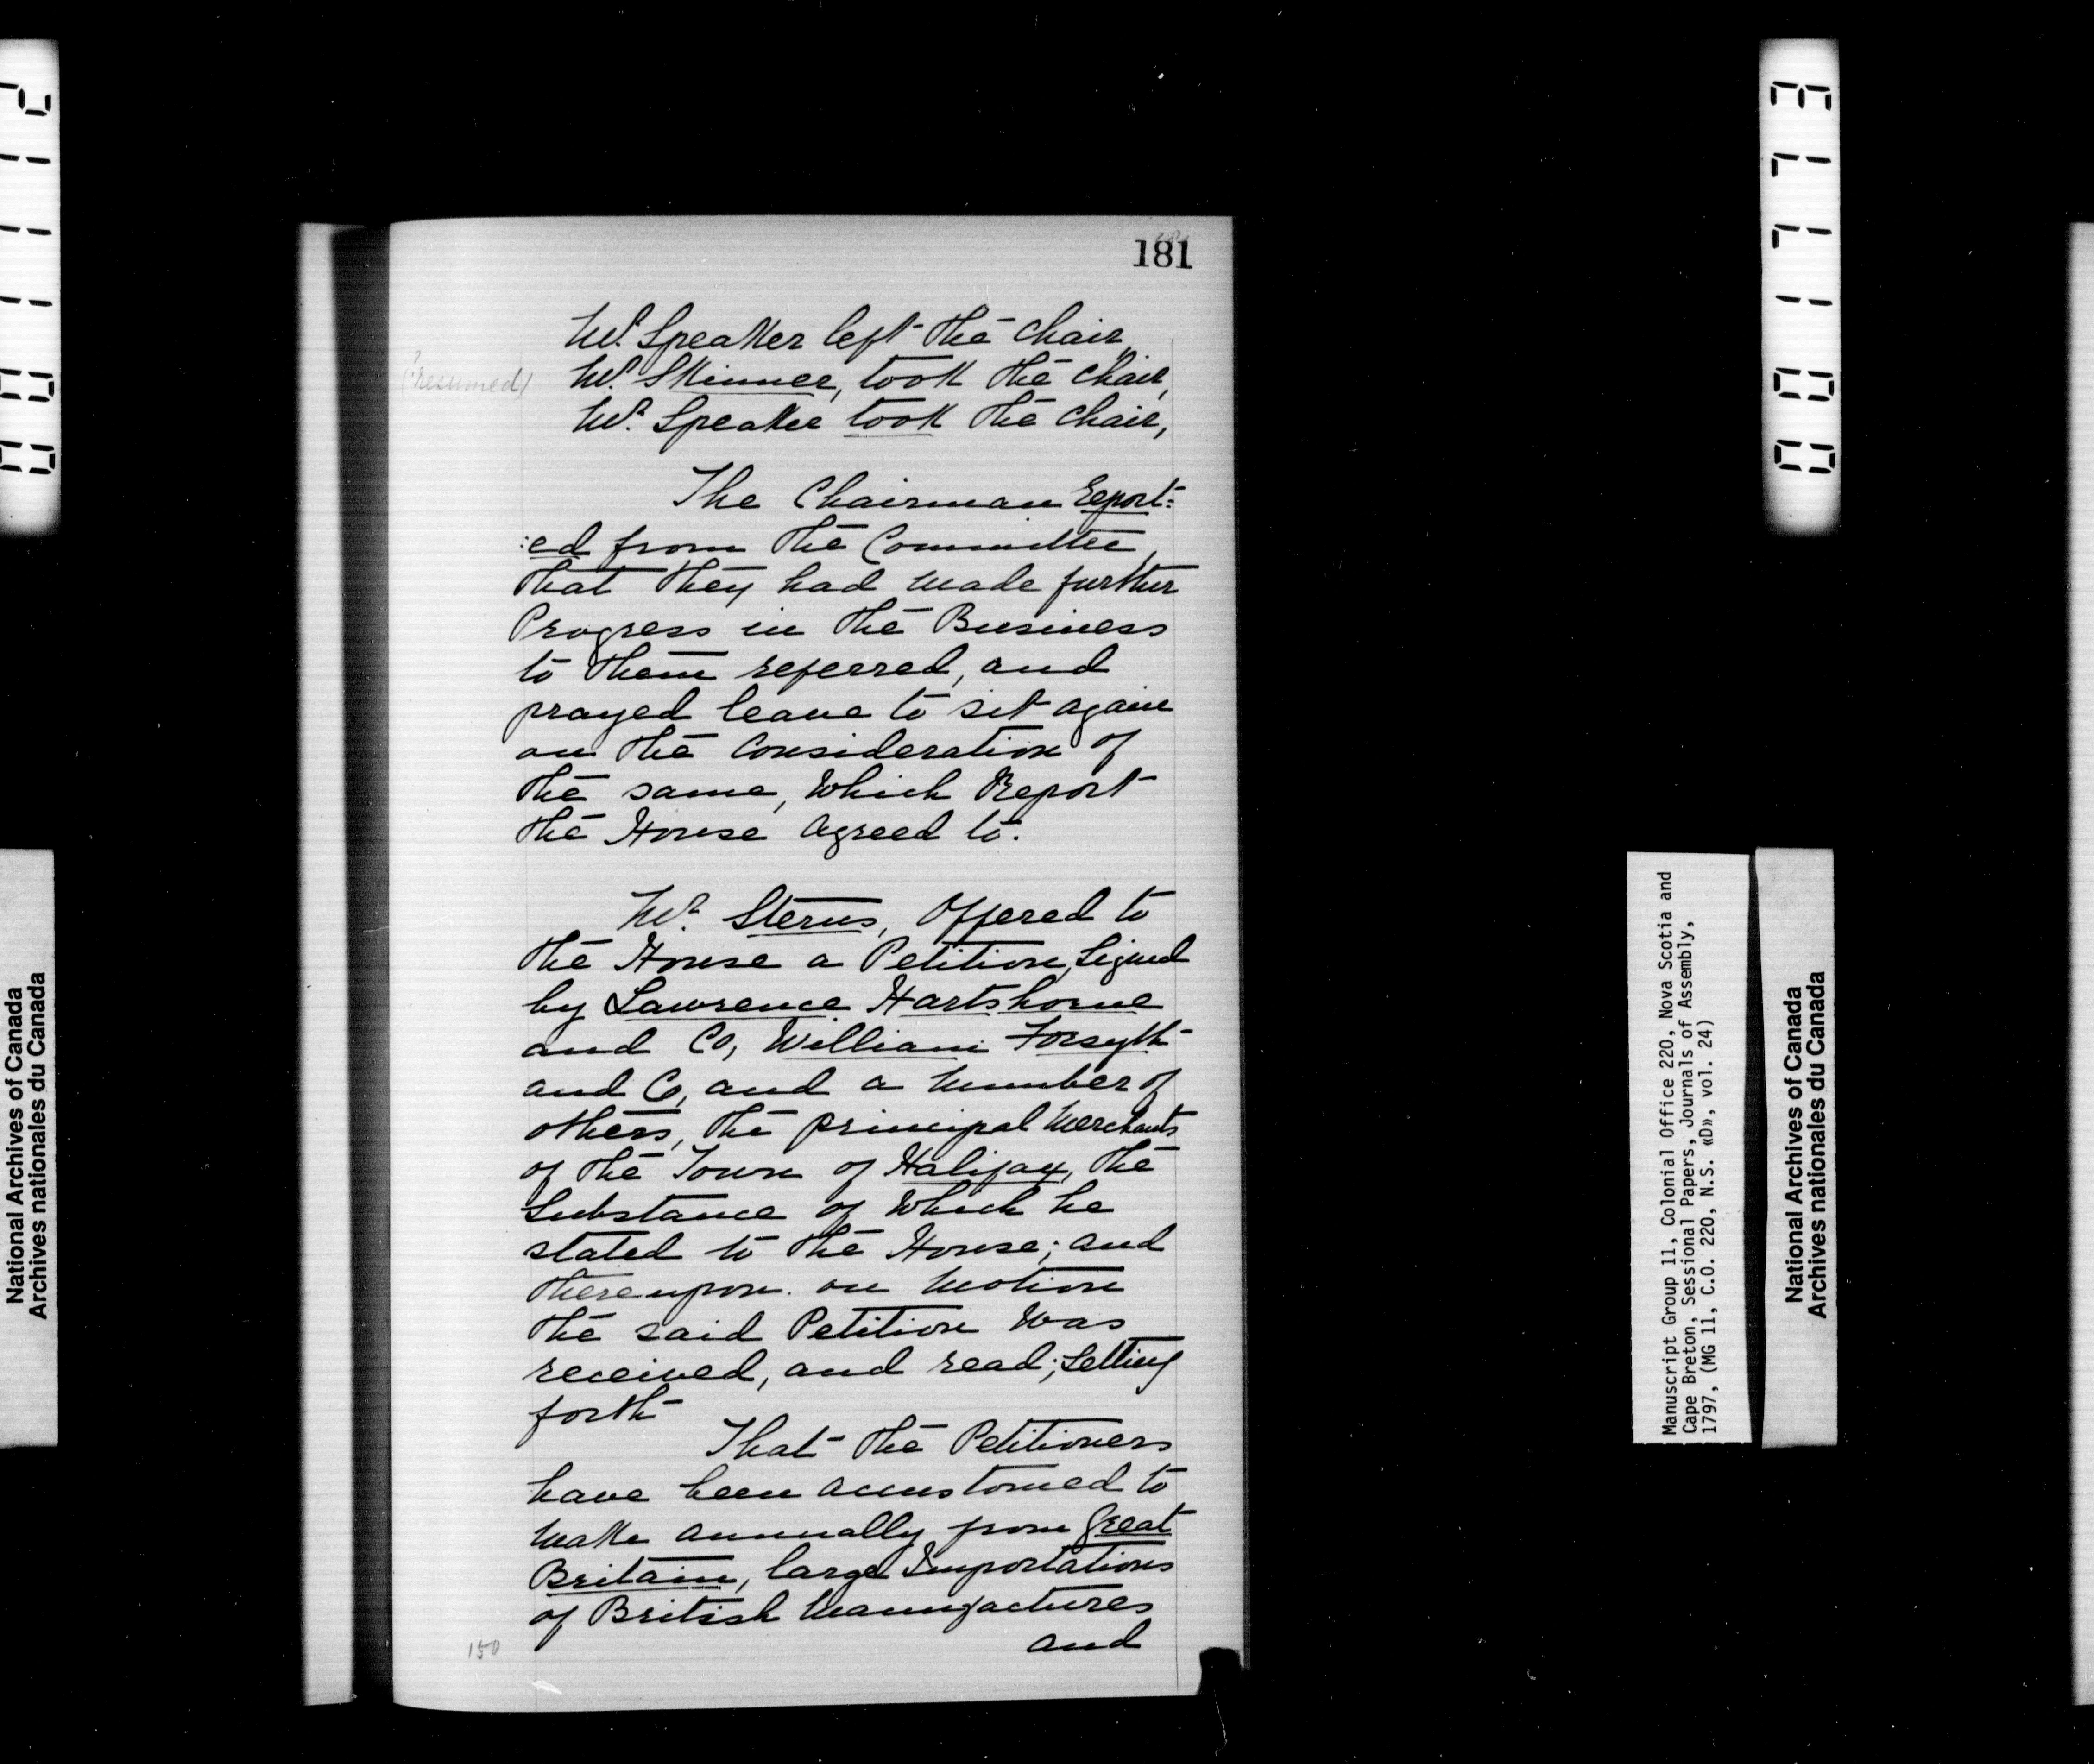 181
Mr. Speaker left the chair,
(resumed)
Mr. Skinner, took the chair,
Mr. Speaker took the chair,
The Chairman Report=
:ed from the Committee,
that they had made further
Progress in the Business
to them referred, and
prayed leave to sit again
on the Consideration of
the same, Which Report
the House Agreed to.
Mr. Sterns, Offered to
the House a Petition, Signed
by Lawrence Hartshorne
and Co, William Forsyth
and Co, and a Number of
others, the principal Merchants
of the Town of Halifax, the
Substance of Which he
stated to the House; and
thereupon. on Motion
the said Petition Was
received, and read; Setting
forth
That the Petitioners
have been accustomed to
Make annually from Great
Britain, large Importations
of British Manufactures
and
150
National Archives of Canada
Archives nationales du Canada
Manuscript Group 11, Colonial Office 220, Nova Scotia and
Cape Breton, Sessional Papers, Journals of Assembly,
1797, (MG 11, C.O. 220, N.S. «D», vol. 24)
National Archives of Canada
Archives nationales du Canada